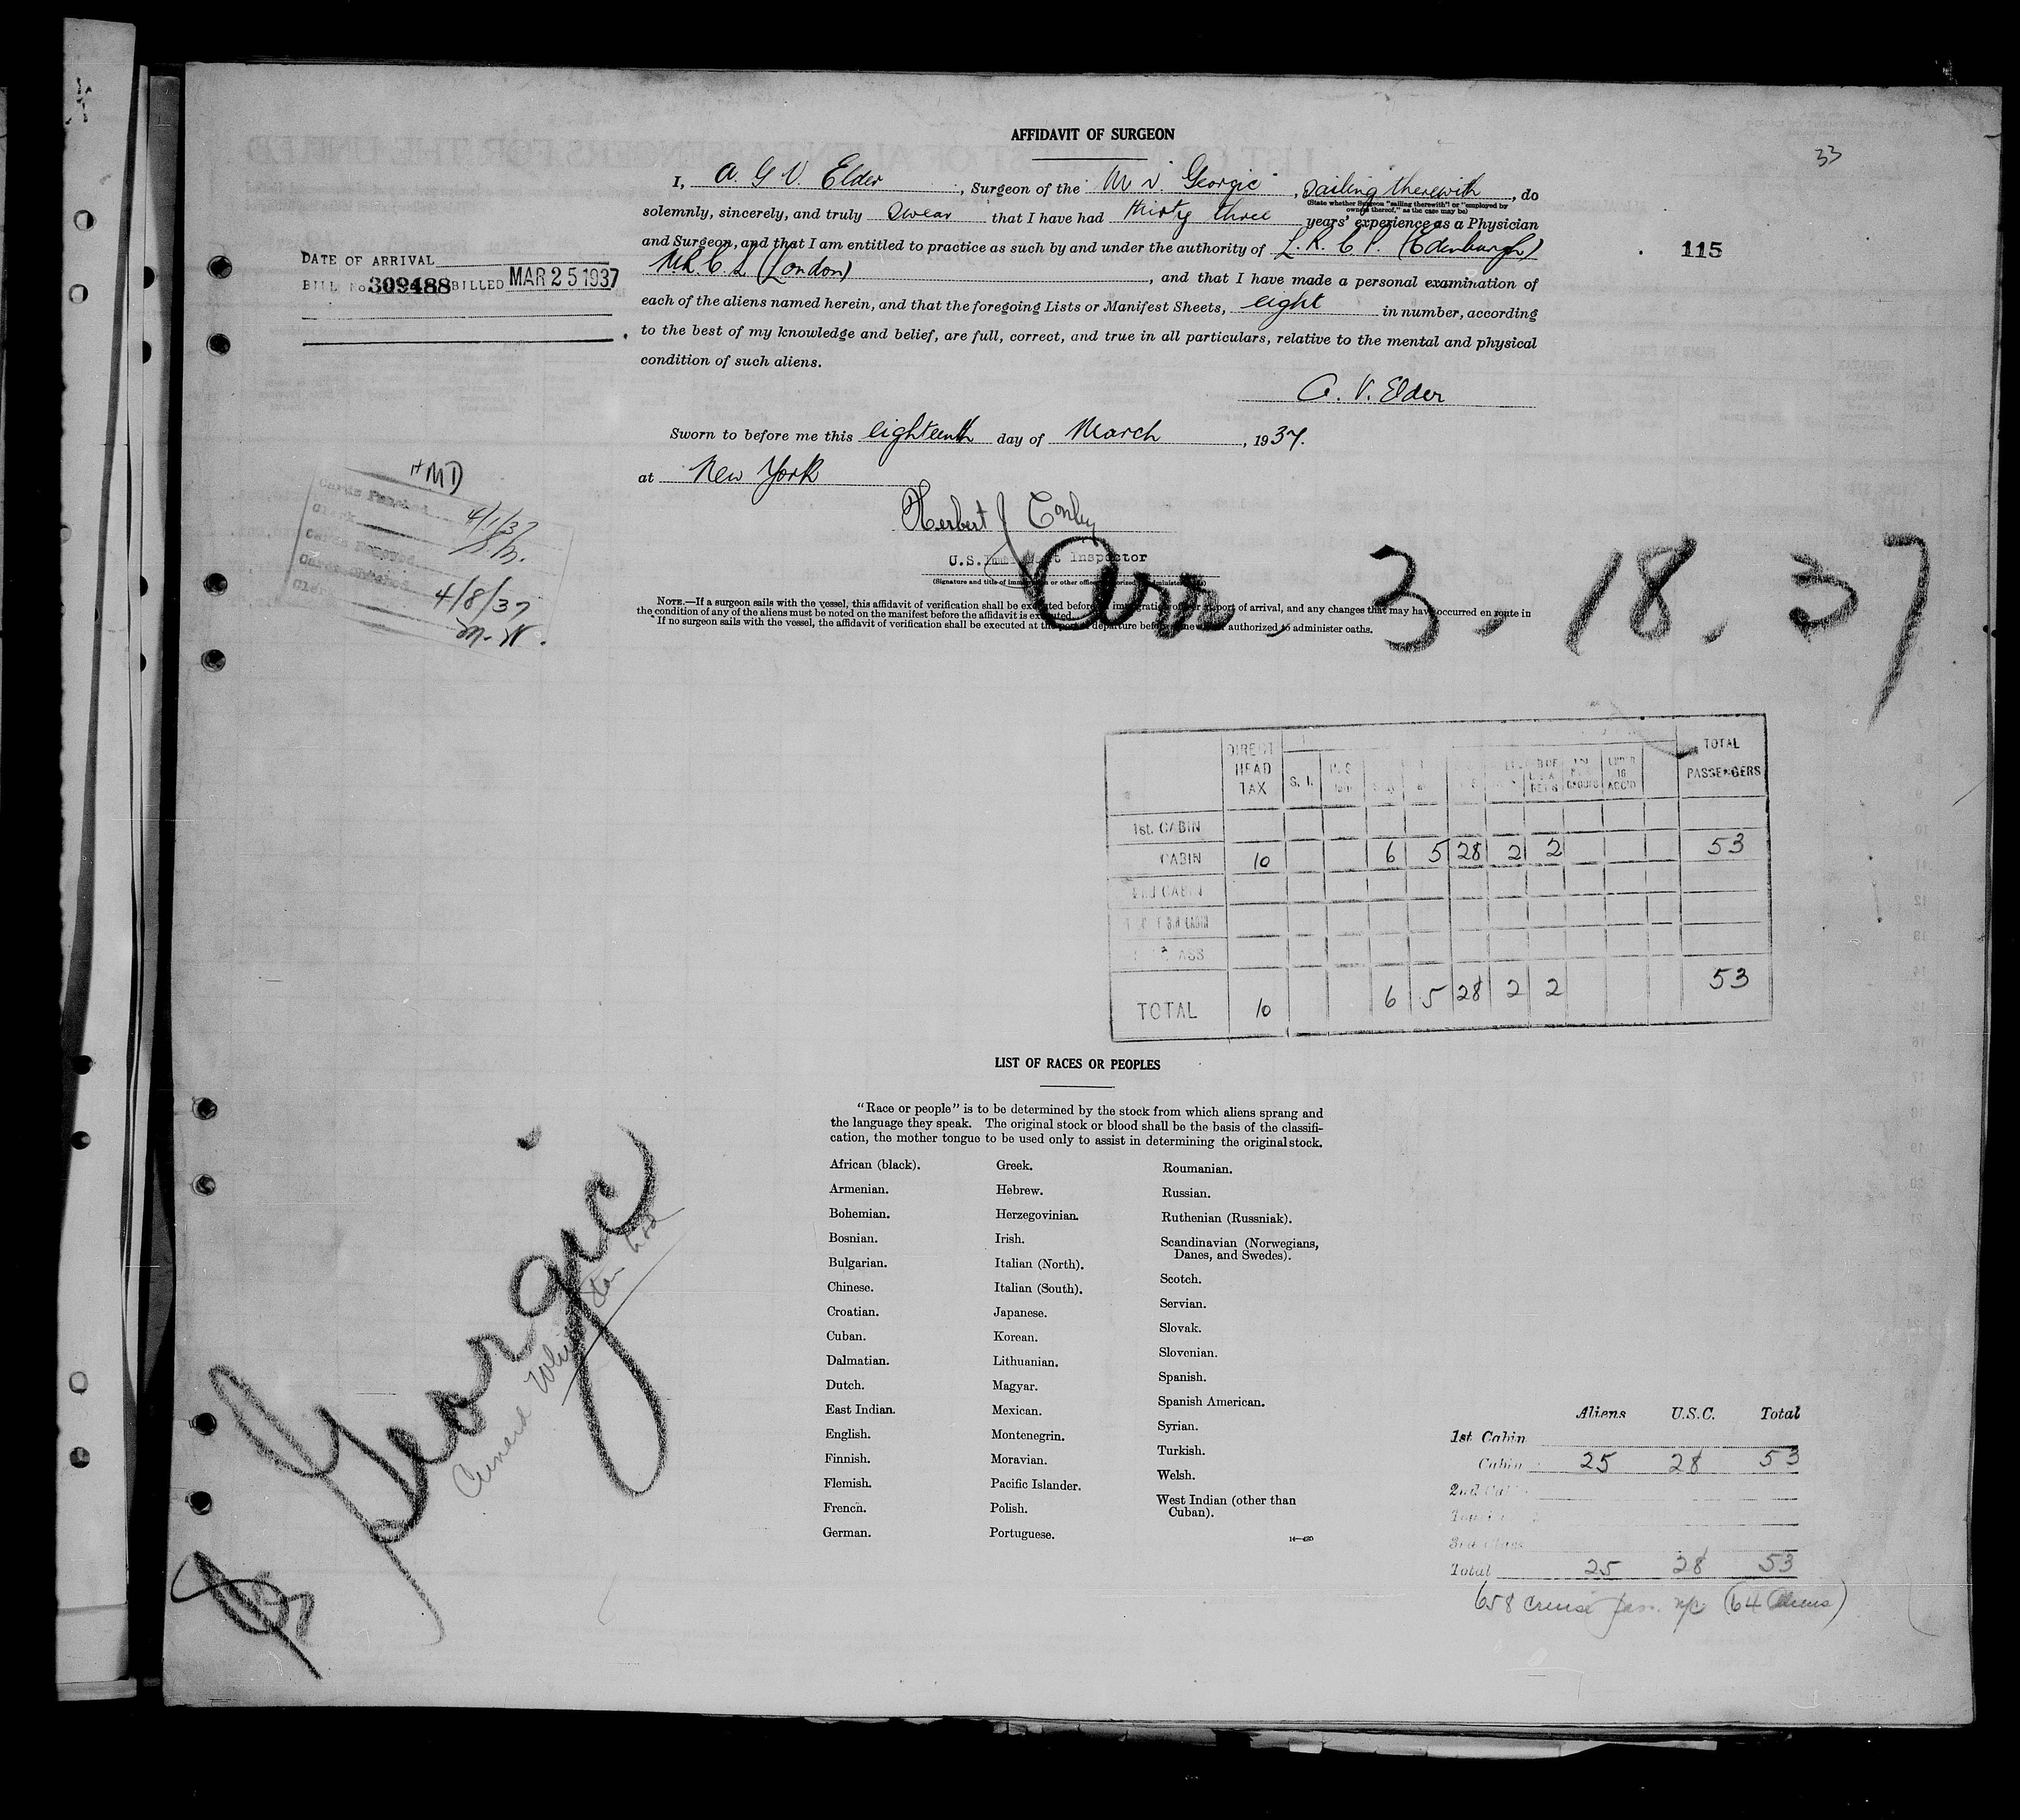 AFFIDAVIT OF SURGEON
33
I, A. G. V. Elder, Surgeon of the M V. Georgic, sailing therewith, do
(State whether Surgeon "sailing therewith" or "employed by
owners thereof," as the case may be)
solemnly, sincerely, and truly swear that I have had thirty three years' experience as a Physician
and Surgeon, and that I am entitled to practice as such by and under the authority of L. R. C. P. (Edenburgh)
M R. C. S (London), and that I have made a personal examination of
each of the aliens named herein, and that the foregoing Lists or Manifest Sheets, eight in number, according
to the best of my knowledge and belief, are full, correct, and true in all particulars, relative to the mental and physical
condition of such aliens.
115
DATE OF ARRIVAL
BILL No. 309488 BILLED MAR 25 1937
A. V. Elder
Sworn to before me this eighteenth day of March, 1937.
at New York
Herbert J Conley
U.S. Immigrant Inspector
(Signature and title of immigration or other officer authorized to administer oaths)
NOTE.—If a surgeon sails with the vessel, this affidavit of verification shall be executed before an immigration officer at port of arrival, and any changes that may have occurred en route in
the condition of any of the aliens must be noted on the manifest before the affidavit is executed.
If no surgeon sails with the vessel, the affidavit of verification shall be executed at the port of departure before one authorized to administer oaths.
MD
Cards Punched 4/1/37
Clerk
4/8/37
Clerk M. W.
Arr. 3, 18, 37
DIRECT HEAD TAX S. I. TOTAL PASSENGERS
1st. CABIN
CABIN 10 6 5 28 2 2 53
2nd CABIN
TOTAL 10 6 5 28 2 2 53
LIST OF RACES OR PEOPLES
"Race or people" is to be determined by the stock from which aliens sprang and
the language they speak. The original stock or blood shall be the basis of the classifi-
cation, the mother tongue to be used only to assist in determining the original stock.
African (black).
Armenian.
Bohemian.
Bosnian.
Bulgarian.
Chinese.
Croatian.
Cuban.
Dalmatian.
Dutch.
East Indian.
English.
Finnish.
Flemish.
French.
German.
Greek.
Hebrew.
Herzegovinian.
Irish.
Italian (North).
Italian (South).
Japanese.
Korean.
Lithuanian.
Magyar.
Mexican.
Montenegrin.
Moravian.
Pacific Islander.
Polish.
Portuguese.
Roumanian.
Russian.
Ruthenian (Russniak).
Scandinavian (Norwegians,
Danes, and Swedes).
Scotch.
Servian.
Slovak.
Slovenian.
Spanish.
Spanish American.
Syrian.
Turkish.
Welsh.
West Indian (other than
Cuban).
Georgic
Cunard White Star
Aliens U.S.C. Total
1st Cabin
Cabin 25 28 53
2nd Cabin
3rd Class
Total 25 28 53
658 cruise pass. n/c (64 Aliens)